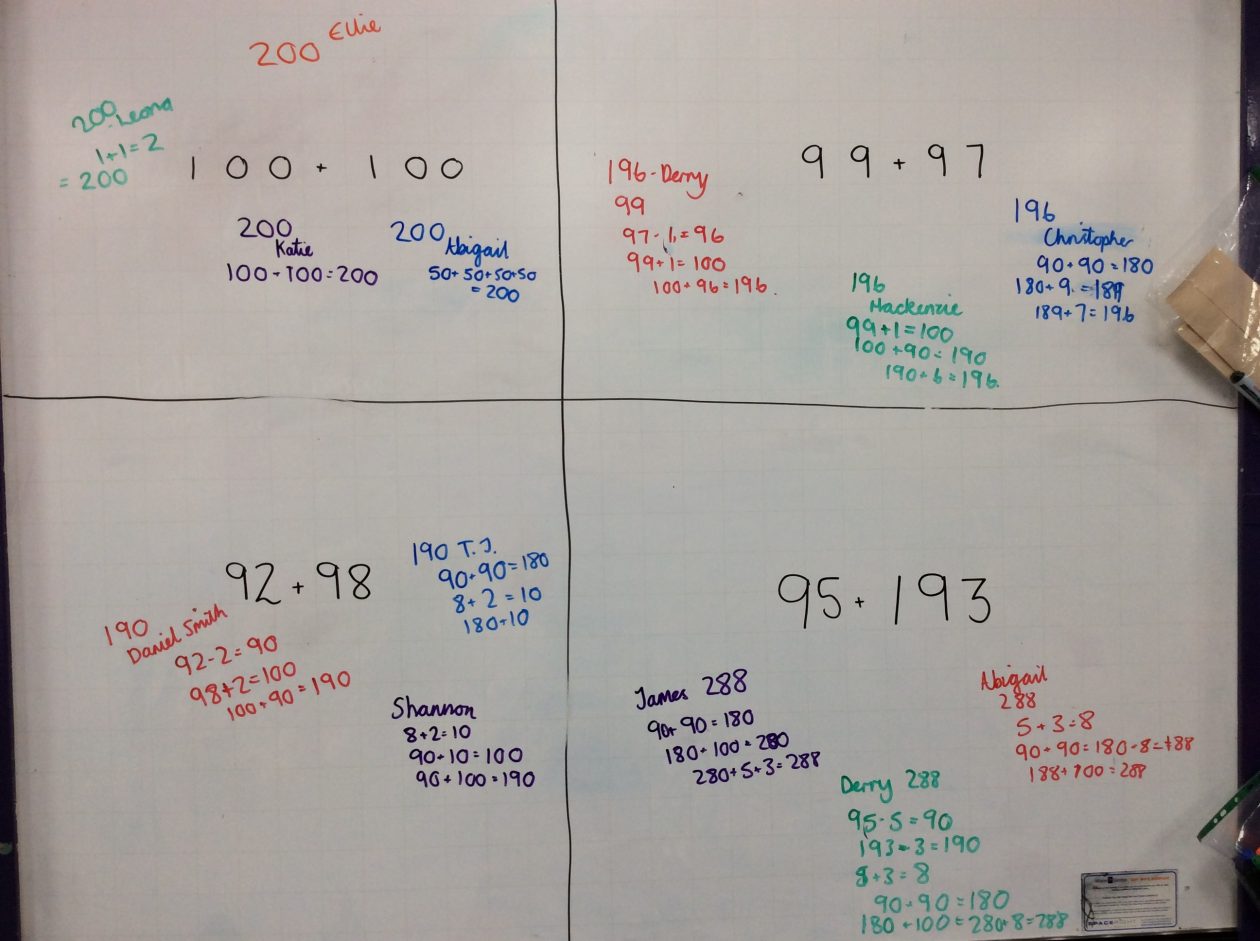 200 Ellie
200 Leona
1+1=2
= 200
100 + 100
200
Katie
100+100=200
200
Abigail
50+50+50+50
= 200
99 + 97
196 - Derry
99
97-1=96
99+1=100
100+96=196.
196
Mackenzie
99+1=100
100+90=190
190+6=196.
196
Christopher
90+90=180
180+9=189
189+7=196
92 + 98
190
Daniel Smith
92-2=90
98+2=100
100+90=190
190 T.J.
90+90=180
8+2=10
180+10
Shannon
8+2=10
90+10=100
90+100=190
95 + 193
James 288
90+90=180
180+100=280
280+5+3=288
Abigail
288
5+3=8
90+90=180+8=188
188+100=288
Derry 288
95-5=90
193-3=190
5+3=8
90+90=180
180+100=280+8=288